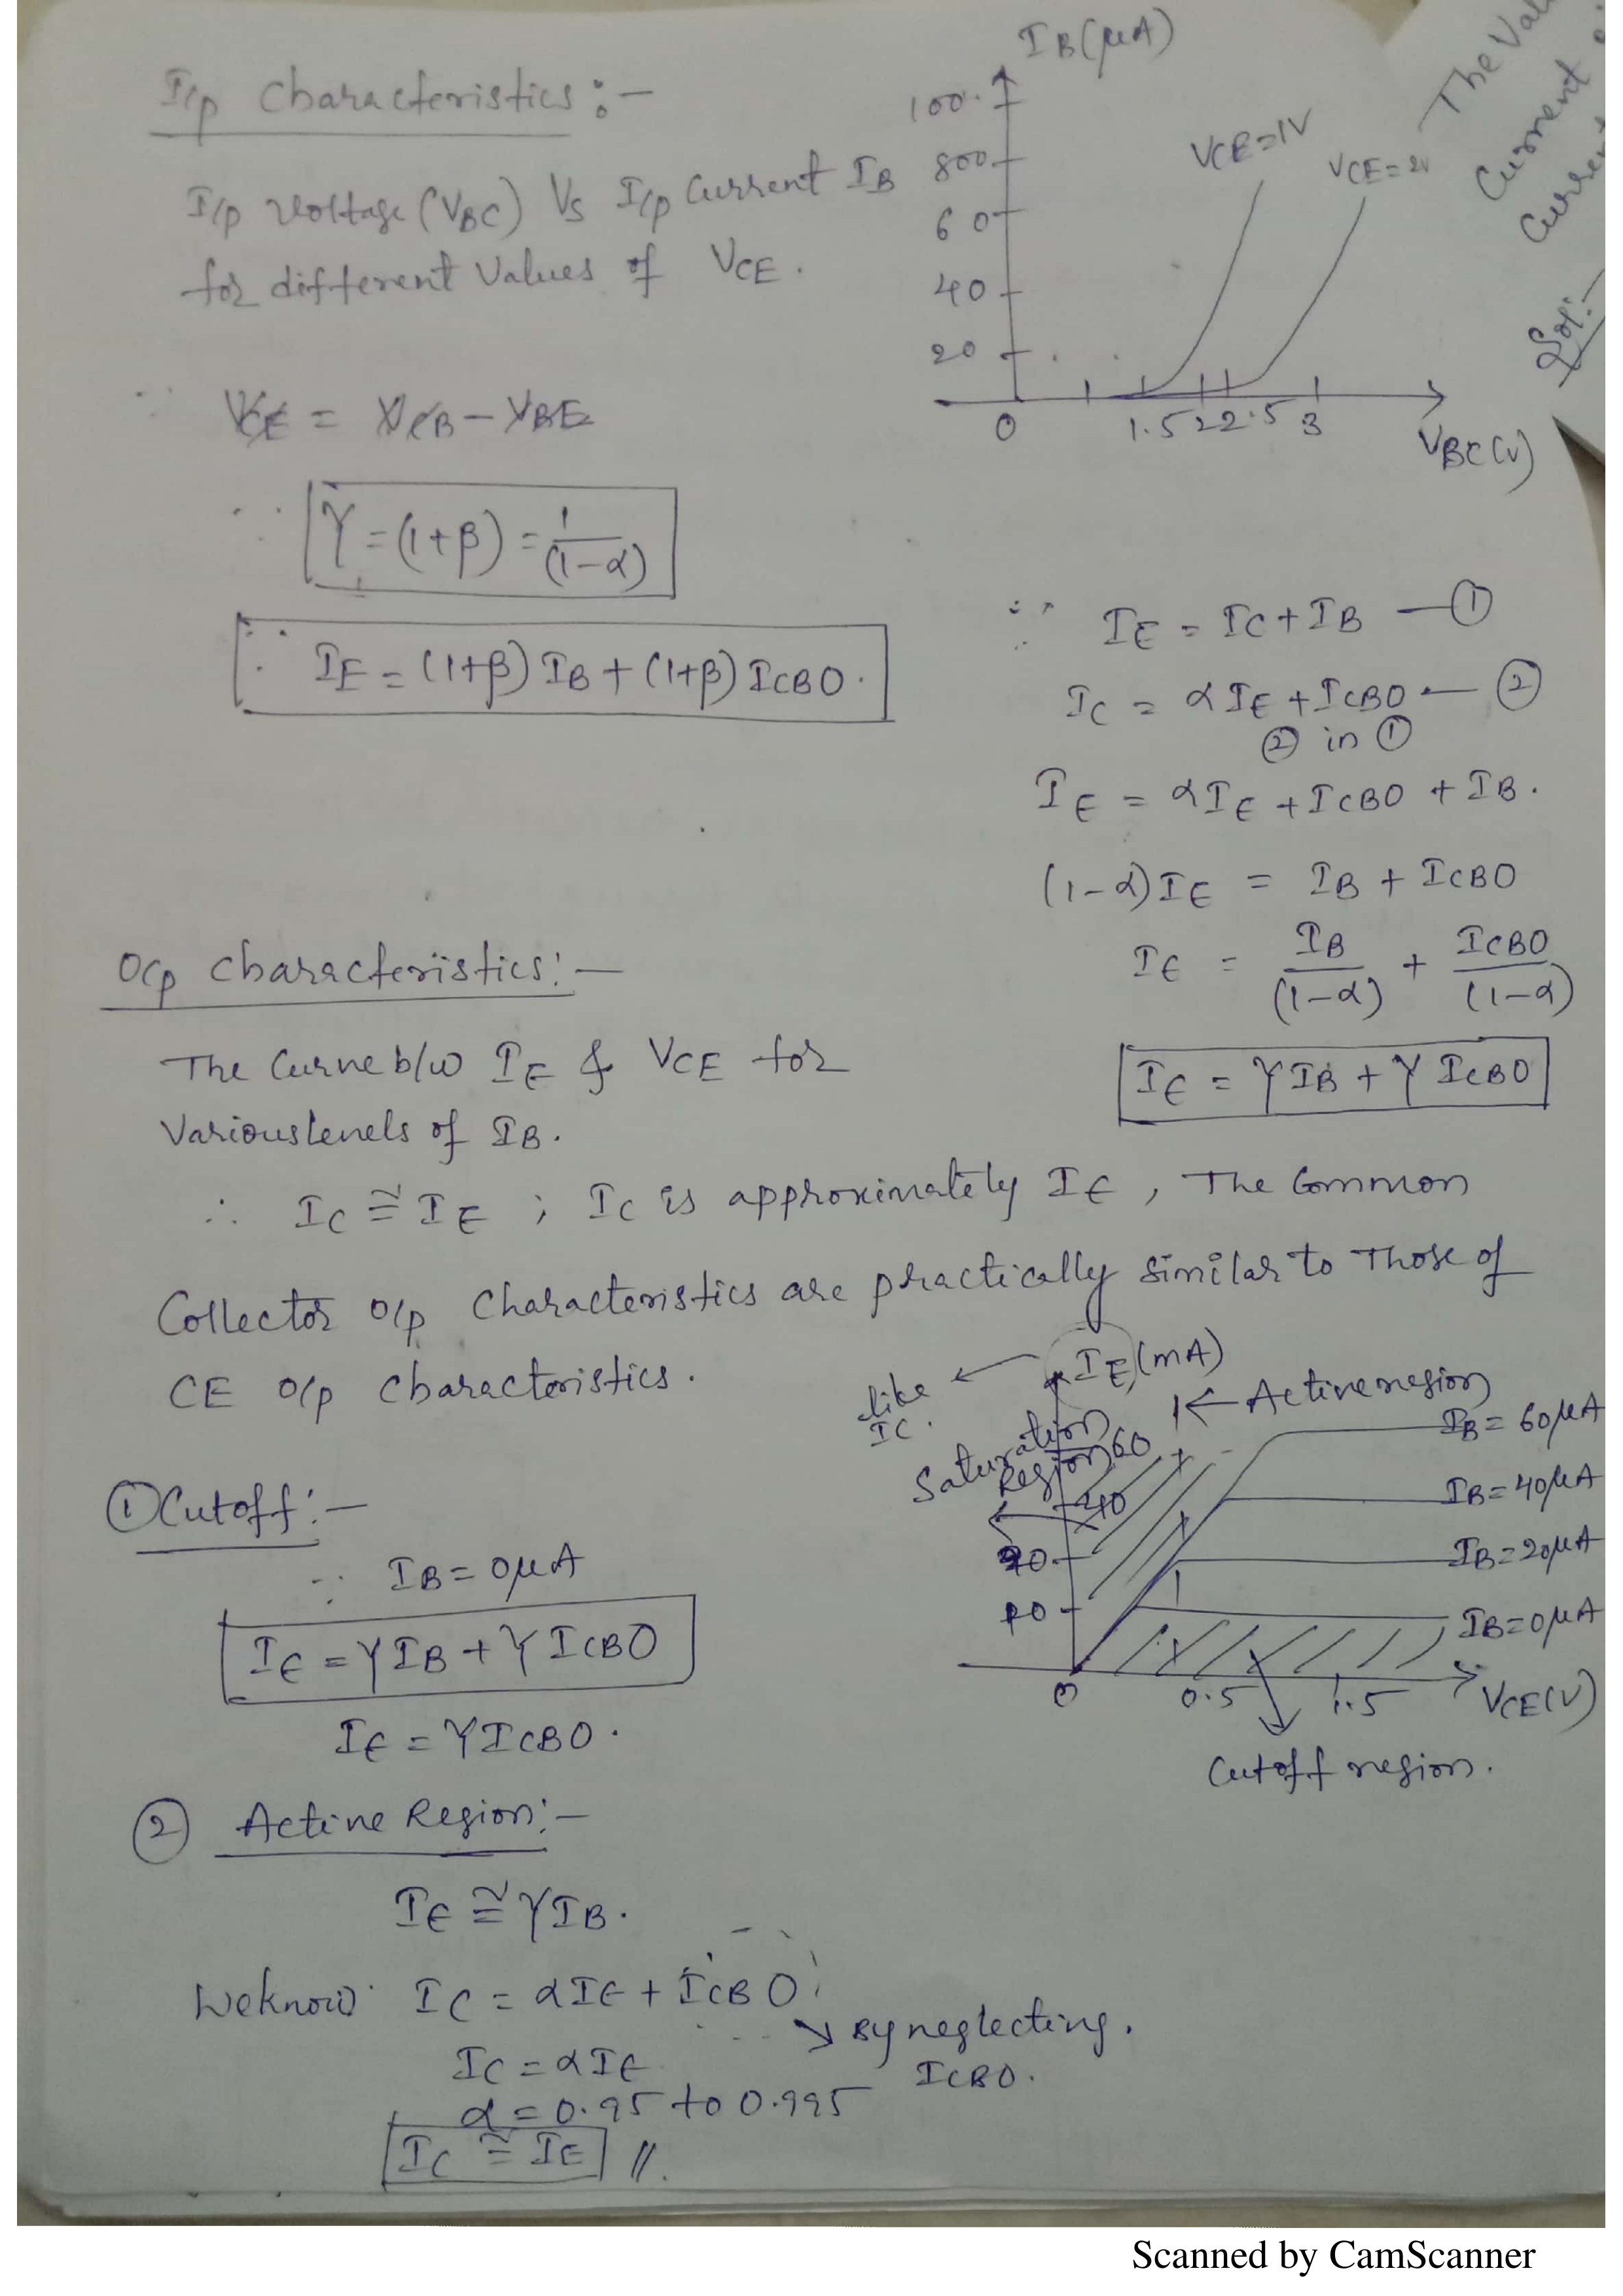 I/p Characteristics :-
I/p Voltage (VBC) Vs I/p Current IB
for different Values of VCE.
IB(μA)
100
800
60
40
20
0
1.5
2
2.5
3
VBC(V)
VCE=1V
VCE=2V
The Val
Current
Current
Sol:-
VCE = VCB - VBE
∵ γ = (1+β) = 1/(1-α)
∵ IE = (1+β) IB + (1+β) ICBO.
∵ IE = IC + IB — ①
IC = αIE + ICBO — ②
② in ①
IE = αIE + ICBO + IB.
(1-α)IE = IB + ICBO
IE = IB/(1-α) + ICBO/(1-α)
IE = γIB + γICBO
O/p Characteristics:-
The Curve b/w IE & VCE for
Various levels of IB.
∴ IC ≅ IE ; IC is approximately IE, The Common
Collector o/p Characteristics are practically similar to Those of
CE o/p Characteristics.
like
IC.
IE(mA)
Active region
Saturation
Region
60
40
20
10
0
0.5
1.5
VCE(V)
IB=60μA
IB=40μA
IB=20μA
IB=0μA
Cutoff region.
① Cutoff:-
∵ IB=0μA
IE = γIB + γICBO
IE = γICBO.
② Active Region:-
IE ≅ γIB.
We know IC = αIE + ICBO
By neglecting.
ICBO.
IC = αIE
α = 0.95 to 0.995
IC ≅ IE //.
Scanned by CamScanner